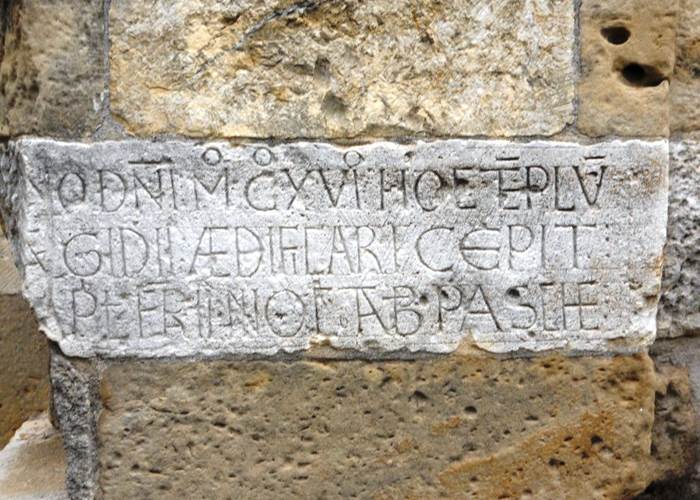 NO DN̄I M̊ C̊ XVI̊ HOC TĒPLV̄
GIDII ÆDIFICARI CEPIT
PL FR II IN OCTAB PASCHE